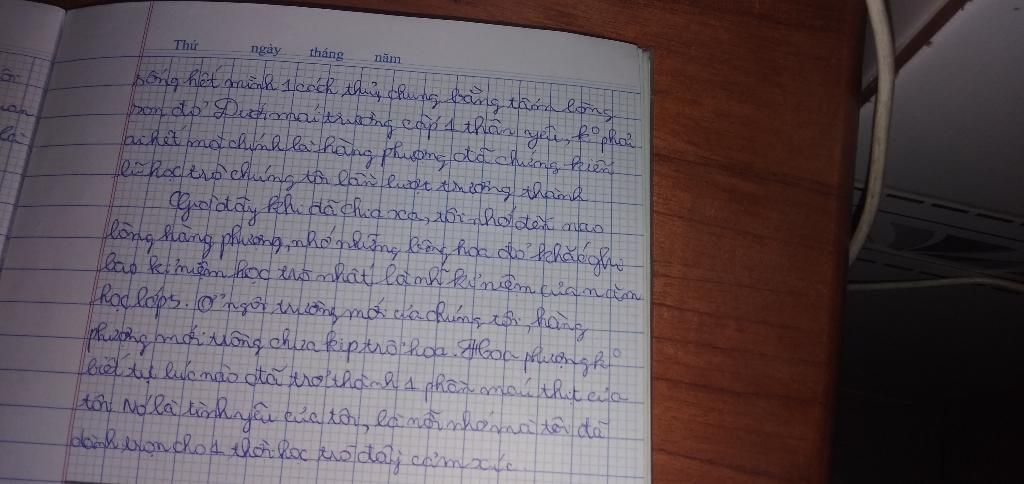 Thứ ngày tháng năm
sống hết mình 1 cách thuỷ chung bằng tấm lòng
son đỏ. Dưới mái trường cấp 1 thân yêu, k° phải
ai hết mà chính là hàng phượng đã chứng kiến
lũ học trò chúng tôi lần lượt trưởng thành
Giờ đây khi đã chia xa, tôi nhớ đến nao
lòng hàng phượng, nhớ những bông hoa đỏ khắc ghi
bao kỉ niệm học trò nhất là kỉ niệm của năm
học lớp 5. Ở ngôi trường mới của chúng tôi, hàng
phượng mới trồng chưa kịp trổ hoa. Hoa phượng k°
biết tự lúc nào đã trở thành 1 phần máu thịt của
tôi. Nó là tình yêu của tôi, là nỗi nhớ mà tôi đã
dành trọn cho 1 thời học trò đầy cảm xúc.